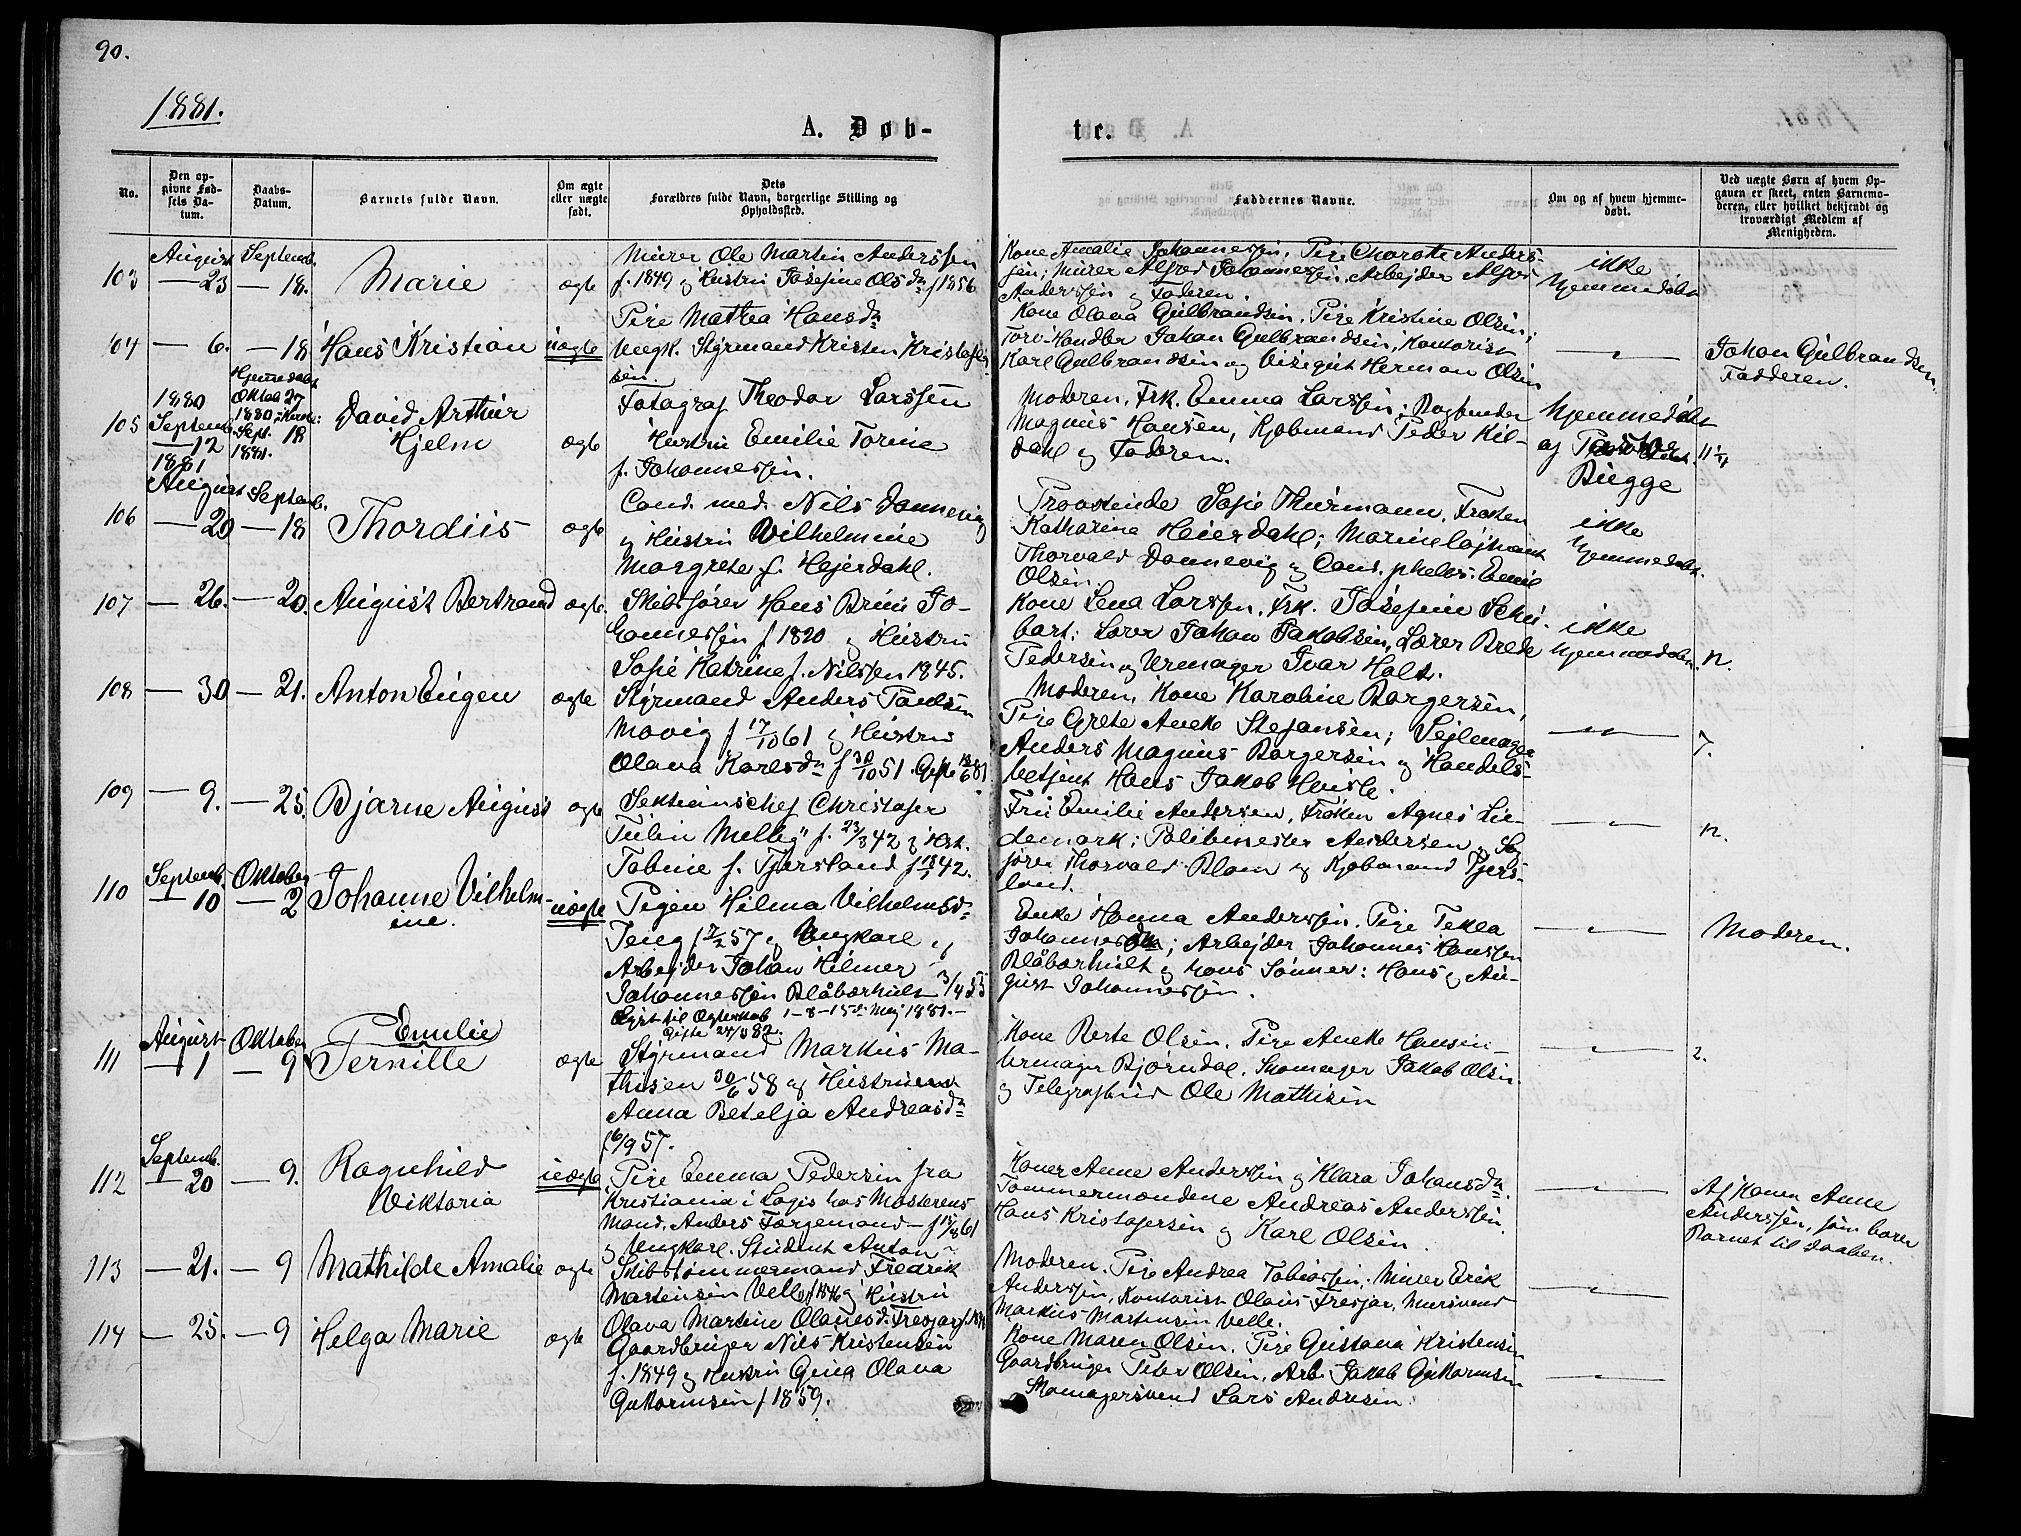 90.
1881.
A. Døb-
te.
No.
Den op-
givne Fød-
sels Da-
tum.
Daabs-
Datum.
Barnets fulde Navn.
Om ægte
eller uægte
født.
Dets
Forældres fulde Navn, borgerlige Stilling og
Opholdssted.
Faddernes Navne.
Om og af hvem hjemme-
døbt.
Ved uægte Børn af hvem Op-
gaven er skeet, enten Barnemo-
deren, eller hvilket bekjendt og
troværdigt Medlem af
Menigheden.
103
August
— 23
Septemb.
— 18.
Marie
ægte
Murer Ole Martin Anderssen
f. 1849 og Hustru Josefine Olsdn f 1856
Kone Amalie Johannessen, Pige Anders-
sen; Murer Alfred Johannessen, Arbejder Alfred
Anderssen og Faderen.
ikke
hjemmedøbt
104
— 6.
— 18
Hans Kristian
uægte
Pige Mathea Hansdn
Ungk. Styrmand Kristen Kristofer
sen.
Kone Olava Gulbrandsen, Pige Kristine Olsen;
Johan Gulbrandsen, Kontorist
Karl Gulbrandsen og Herman Olsen
— " —
Johan Gulbrandsen
Fadderen.
105
1880
Septemb.
— 12
Hjemmedøbt
Oktob 27
1880
Sept. 18
1881.
David Arthur
Hjelm
ægte
Fotograf Theodor Larssen
Hustru Emilie Torine
f. Johannessen.
Moderen, Frk. Emma Larssen; Bogbinder
Magnus Hansen, Kjøbmand Peder Kil-
dahl og Faderen.
hjemmedøbt
af Pastor
Bugge
106
1881
August
— 20
Septemb.
— 18
Thordiis
ægte
Cand. med. Nils Dannevig
og Hustru Vilhelmine
Margrete f. Hejerdahl.
Provstinde Sofie Thurmann, Frøken
Katharina Heierdahl; Marineløjtnant
Thorvald Dannevig og Cand. philos. Emil
Olsen.
ikke
hjemmedøbt.
107
— 26.
— 20.
August Bertrand
ægte.
Skibsfører Hans Bruu Jo-
hannessen f 1820 og Hustru
Sofie Katrine f. Nilssen 1845.
Kone Lena Larssen, Frk. Josefine Schu-
bart; Lærer Johan Jakobsen, Lærer Brede
Pedersen og Urmager Ivar Holt.
ikke
hjemmedøbt.
n.
108
— 30
— 21.
Anton Eugen
ægte
Styrmand Anders Paulsen
Movig f 17/10 61 og Hustru
Olava Karlsdn f 30/10 51.
Moderen, Kone Karoline Borgersen,
Pige Grete Aneke Stefansen; Sejlmager
Anders Magnus Borgersen og Handels-
betjent Hans Jakob Heisle.
— " —
7.
109
— 9.
— 25.
Bjarne August
ægte
Sektionschef Christofer
Tulin Mellbg f. 23/3 42 og Hst.
Tobine f. Tjersland f 42.
Fru Emilie Andersen, Frøken Agnes Lie-
demark; Politimester Andersen, Sag-
fører Thorvald Blom og Kjøbmand Tjers-
land.
— " —
n.
110
Septemb.
— 10
Oktober
— 2
Johanne Vilhelm-
ine.
uægte
Pigen Hilma Vilhelmsdn
Teng f 7/2 57 og Ungkarl og
Arbejder Johan Hilmer
Johannessen Blåbærhult 3/4 55
Lyst til Ægteskab 1-8-15de Maj 1881.
Enke Hanna Anderssen, Pige Tekla
Johannesdn; Arbejder Johannes Hanssen
Blåbærhult og hans Sønner: Hans og Au-
gust Johannessen.
— " —
Moderen.
111
August
— 1
Oktober
— 9
Emilie
Pernille
ægte
Styrmand Markus Ma-
thisen 30/6 58 og Hustru
Anna Betelja Andreasdn
f 6/9 57.
Kone Berte Olsen, Pige Aneke Hansen
Urmager Bjørndal, Skomager Jakob Olsen
og Telegrafbud Ole Mathisen
— " —
2.
112
Septemb.
— 20
— 9.
Ragnhild
Viktoria
uægte
Pige Emma Pedersen fra
Kristiania i Logis hos Mosterens
Mand, Anders Færgemand — f 61
og Ungkarl. Student Anton
Koner Anne Anderssen og Klara Johansdn.
Tømmermændene Andreas Anderssen,
Hans Kristofersen og Karl Olsen.
— " —
Af Konen Anne
Anderssen, som barer
Barnet til Daaben.
113
— 21.
— 9
Mathilde Amalie
ægte
Skibstømmermand Fredrik
Martensen Velle f 1846 og Hustru
Olava Martine Olausdn Fresjar
Moderen, Pige Andrea Tobiassen; Murer Erik
Anderssen, Kontorist Olaus Fresjar, Mursvend
Markus Martensen Velle.
— " —
114
— 25.
— 9
Helga Marie
ægte
Gaardbruger Nils Kristensen
f. 1849 og Hustru Olava
Guttormsen f 1859.
Kone Maren Olsen, Pige Gustava Kristensen
Gaardbruger Peter Olsen, Arb. Jakob Guttormsen
Skomagersvend Lars Andresen.
— " —